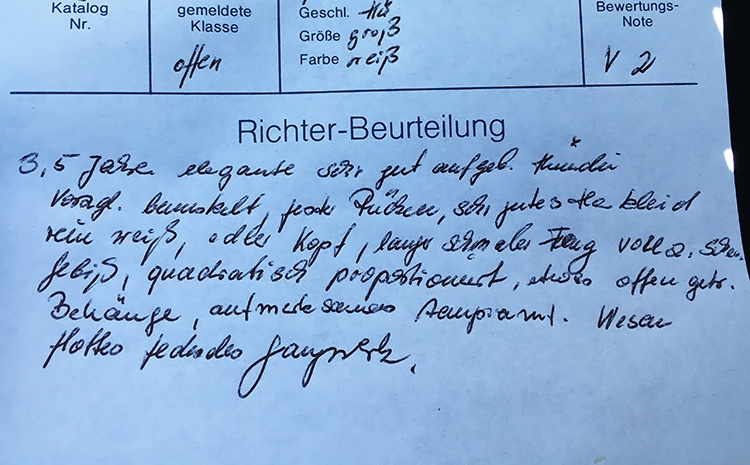 Katalog gemeldete Geschl. Hü Bewertungs-
Nr. Klasse Größe groß Note
offen Farbe weiß V 2
Richter-Beurteilung
3,5 Jahre elegante sehr gut aufgeb. Hündin
Vorzgl. bemuskelt, fester Rücken, sehr gutes Haarkleid
rein weiß, edler Kopf, langer schmaler Fang vollz. Scheren
gebiß, quadratisch proportioniert, etwas offen getr.
Behänge, aufmerksames Wesen
flottes federndes Gangwerk.